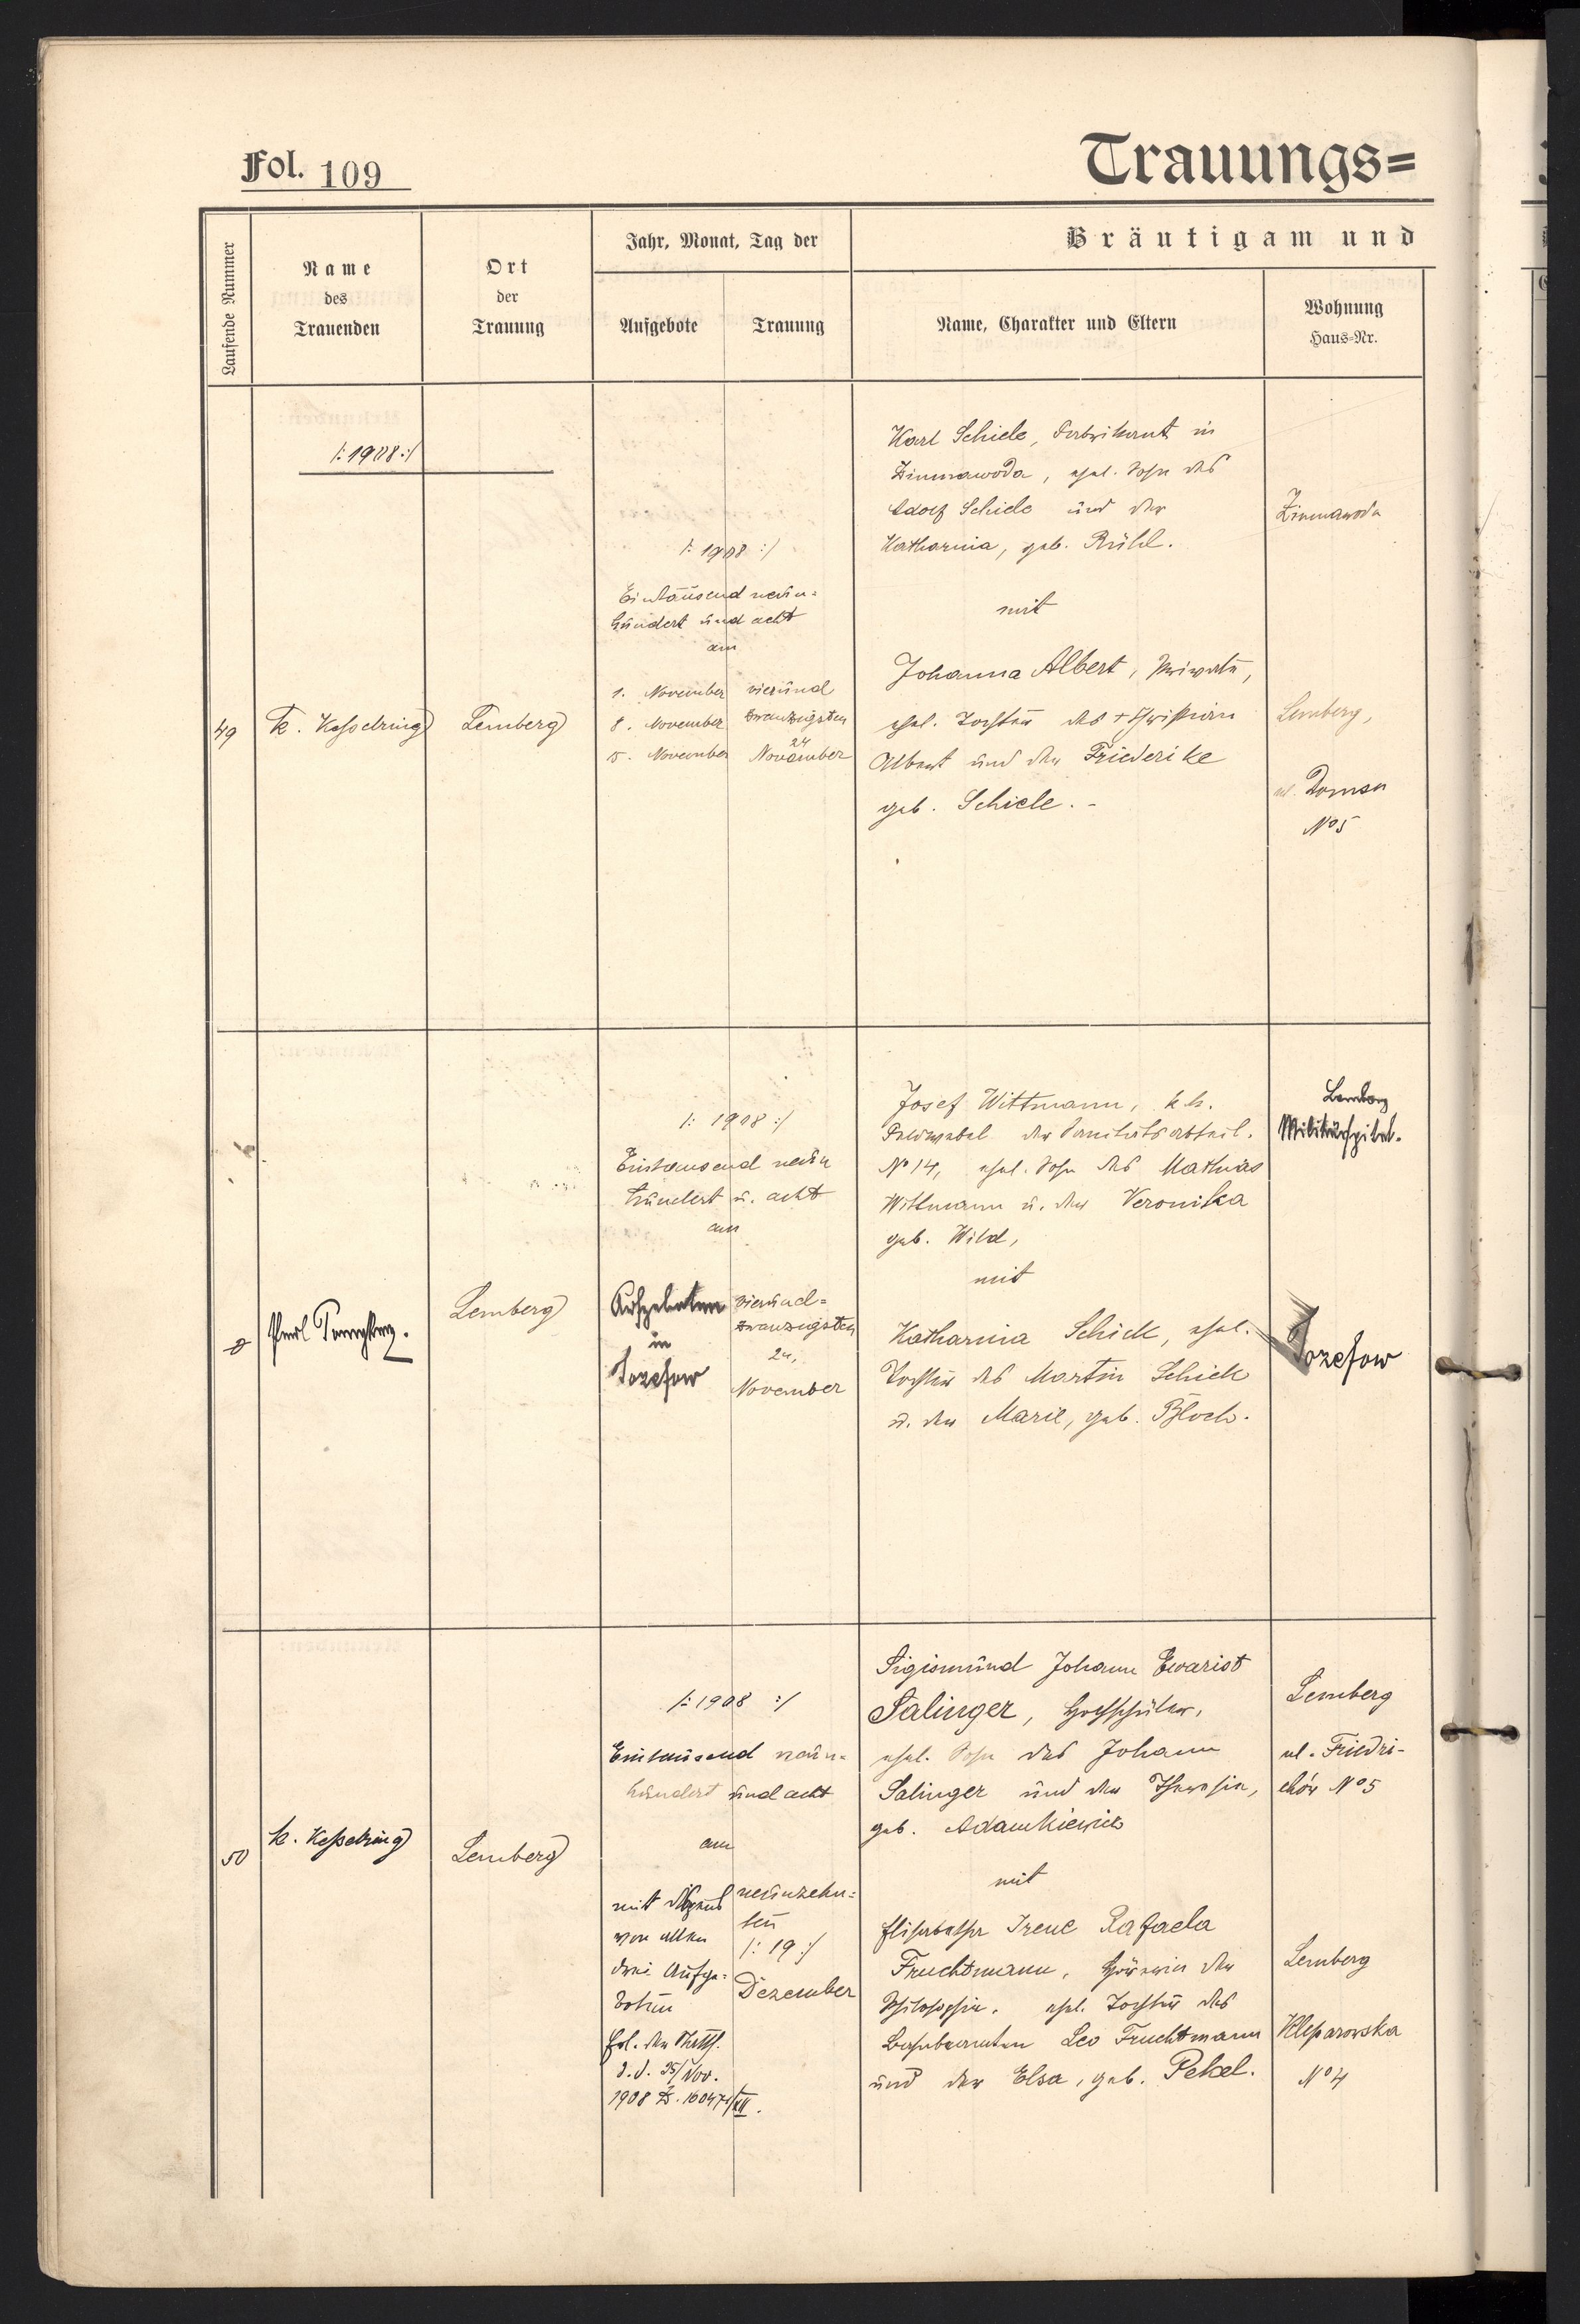 Fol. 109
Trauungs=
Laufende Nummer
Name
des
Trauenden
Ort
der
Trauung
Jahr, Monat, Tag der
Aufgebote
Trauung
Bräutigam und
Name, Charakter und Eltern
Wohnung
Haus=Nr.
/: 1908 :/
49
K. Kesselring
Lemberg
/: 1908 :/
Eintausend neun=
hundert und acht
am
1. November
8. November
15. November
vierund
zwanzigsten
24
November
Karl Schiele, Fabrikant in
Zimnawoda, ehel. Sohn des
Adolf Schiele und der
Katharina, geb. Rühl.
mit
Johanna Albert, Private,
ehel. Tochter des + Christian
Albert und der Friederike
geb. Schiele. -
Zimnawoda
Lemberg,
ul. Domsa
No 5
Paul
Lemberg
/: 1908 :/
Eintausend neun
hundert u. acht
am
Aufgeboten
in
Jozefow
vierund=
zwanzigsten
24.
November
Josef Wittmann, k.k.
Feldwebel der Sanitätsabteil.
No 14, ehel. Sohn des Mathias
Wittmann u. der Veronika
geb. Wild,
mit
Katharina Schick, ehel.
Tochter des Martin Schick
u. der Marie, geb. Bloch.
Lemberg
Militärspital.
Jozefow
50
K. Kesselring
Lemberg
/: 1908 :/
Eintausend neun=
hundert und acht
am
mit Dispens
von allen
drei Aufge=
boten
Erl. der Statth.
d. d. 25/Nov.
1908 Z. /XII.
neunzehn=
ten
/: 19 :/
Dezember
Sigismund Johann Ewarist
Salinger, Hochschüler,
ehel. Sohn des Johann
Salinger und der Theresia,
geb. Adamkiewicz
mit
Elisabetha Irene Rafaela
Fruchtmann, Hörerin der
Philosophie, ehel. Tochter des
Bahnbeamten Leo Fruchtmann
und der Elsa, geb. Pekel.
Lemberg
ul. Friedri-
chów No 5
Lemberg
Kleparowska
No 4